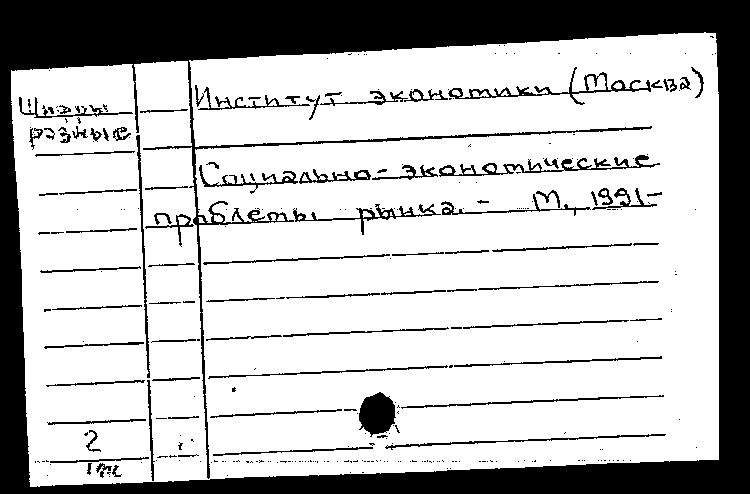 Шифры
разные
Институт экономики (Москва)
Социально-экономические
проблемы рынка. - М., 1991-
2